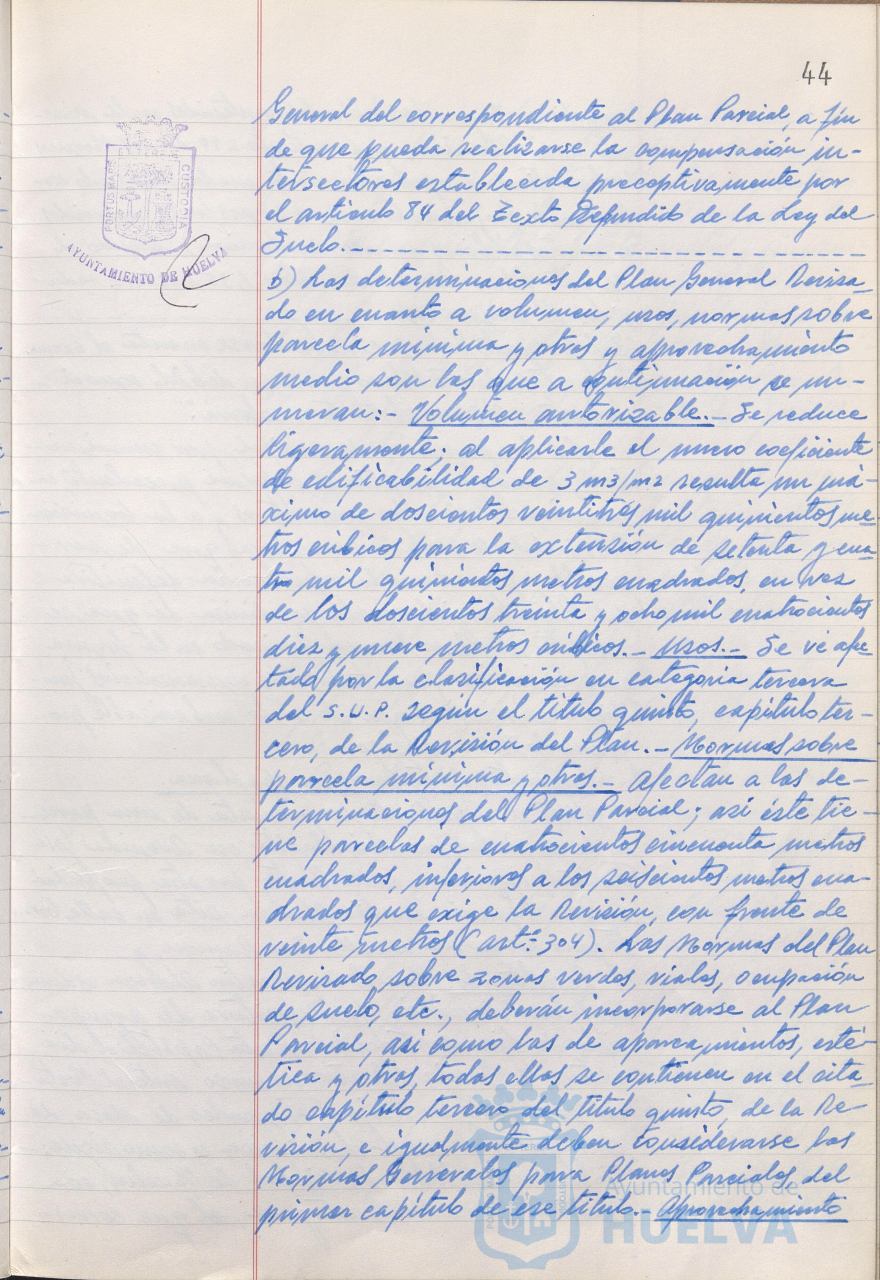 44
General del correspondiente al Plan Parcial, a fin
de que pueda realizarse la compensación in-
tersectores establecida preceptivamente por
el artículo 84 del Texto Refundido de la Ley del
Suelo.
b) Las determinaciones del Plan General Revisa-
do en cuanto a volumen, usos, normas sobre
parcela mínima y otras y aprovechamiento
medio son las que a continuación se enu-
meran:- Volumen autorizable.- Se reduce
ligeramente; al aplicarle el nuevo coeficiente
de edificabilidad de 3 m3/m2 resulta un má-
ximo de doscientos veintitrés mil quinientos me-
tros cúbicos para la extensión de setenta y cua-
tro mil quinientos metros cuadrados, en vez
de los doscientos treinta y ocho mil cuatrocientos
diez y nueve metros cúbicos.- Usos.- Se vé afec-
tado por la clasificación en categoría tercera
del S.U.P. según el título quinto, capítulo ter-
cero, de la Revisión del Plan.- Normas sobre
parcela mínima y otras.- Afectan a las de-
terminaciones del Plan Parcial; así éste tie-
ne parcelas de cuatrocientos cincuenta metros
cuadrados, inferiores a los seiscientos metros cua-
drados que exige la Revisión, con frente de
veinte metros (artº 304). Las Normas del Plan
Revisado sobre zonas verdes, viales, ocupación
de suelo, etc., deberán incorporarse al Plan
Parcial, así como las de aparcamientos, esté-
tica y otras, todas ellas se contienen en el cita-
do capítulo tercero del título quinto, de la Re-
visión, e igualmente deben considerarse las
Normas Generales para Planes Parciales del
primer capítulo de ese título.- Aprovechamiento
PORTUS MARIS
ET TERRAE
CUSTODIA
AYUNTAMIENTO DE HUELVA
Ayuntamiento de
HUELVA